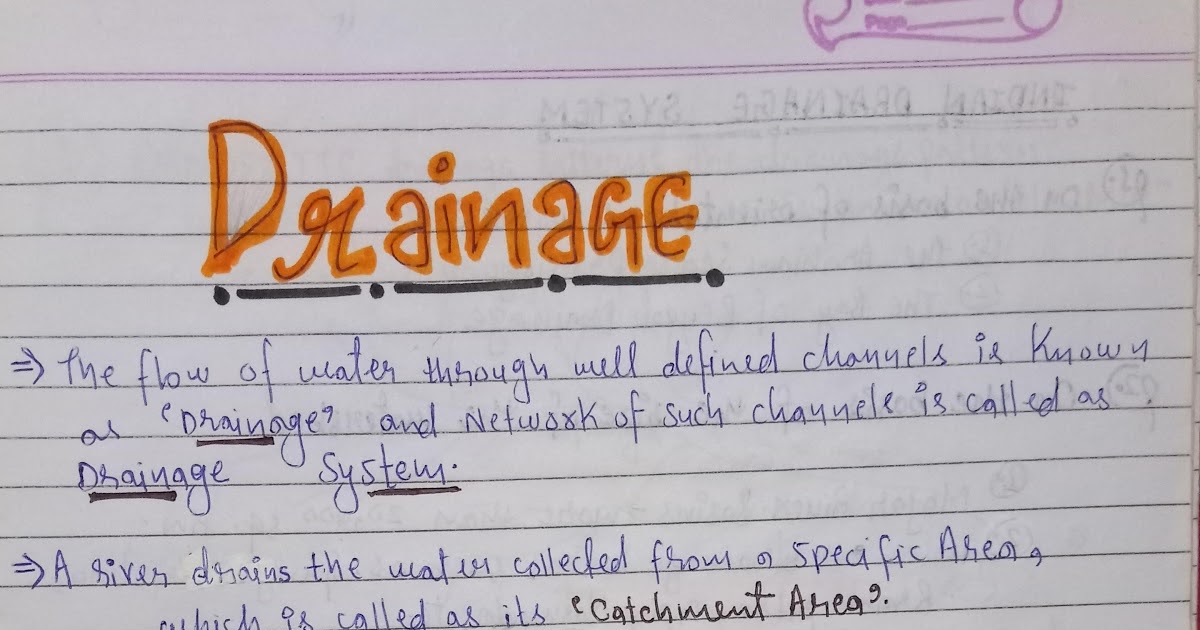 Page
DrainAGE
⇒ The flow of water through well defined channels is Known
as 'Drainage' and Network of such channels is called as
Drainage System.
⇒ A river drains the water collected from a specific Area,
which is called as its "Catchment Area".
INDIAN DRAINAGE SYSTEM